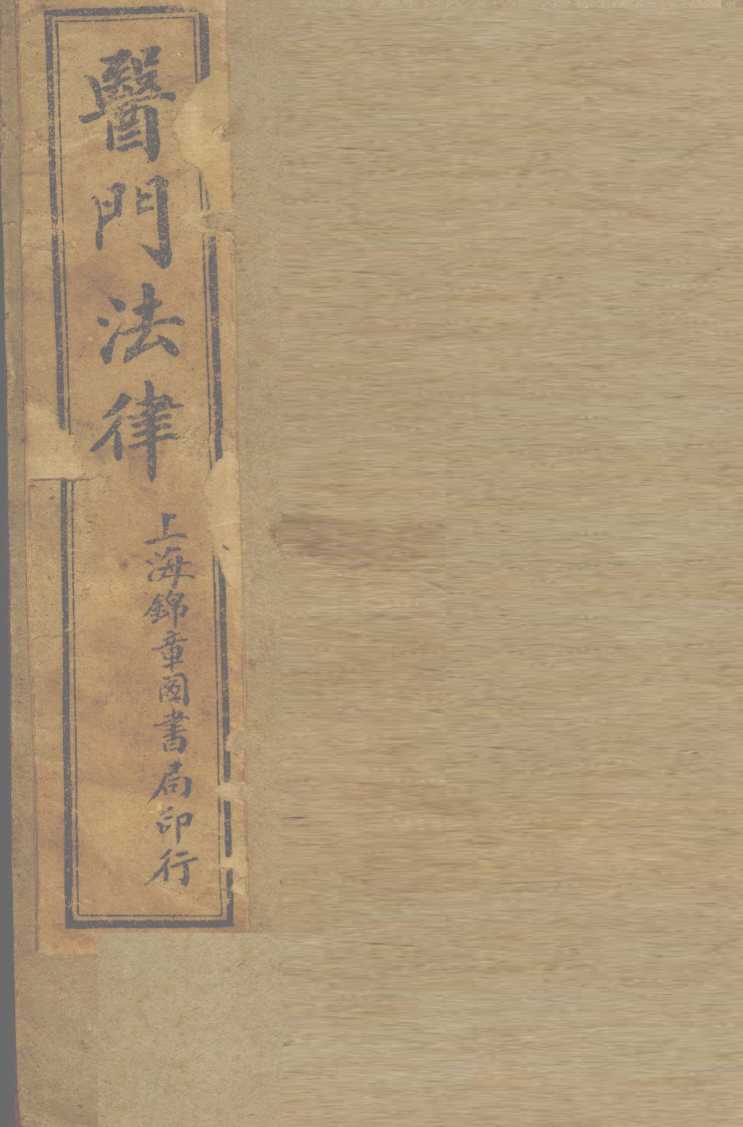 醫門法律
上海錦章圖書局印行